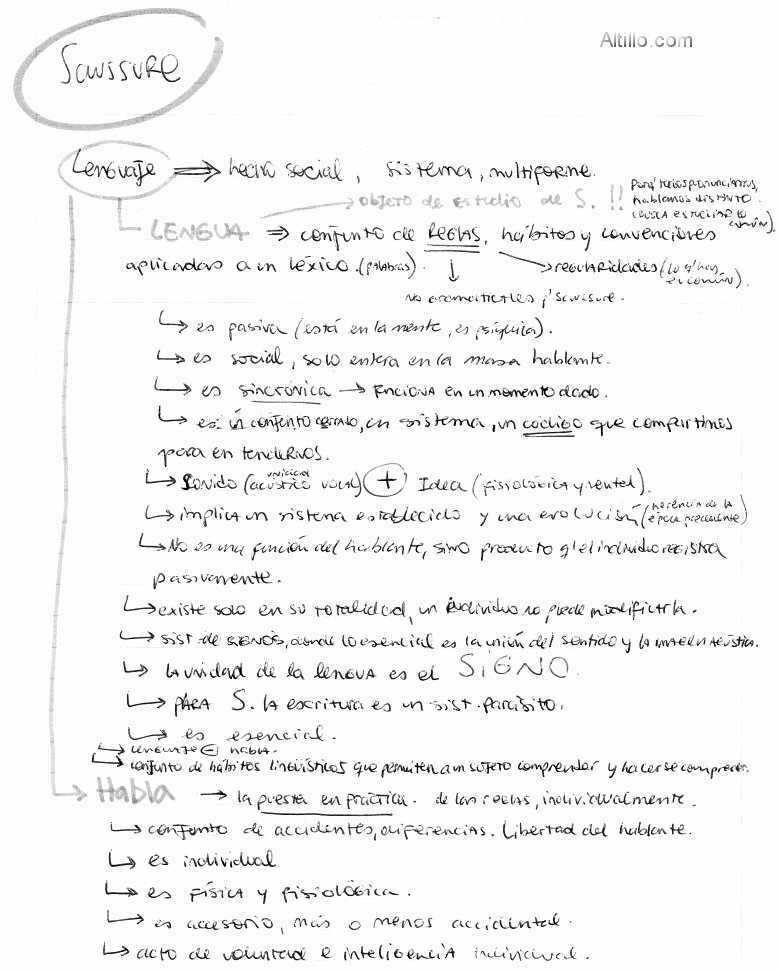 Altillo.com
Saussure
Lenguaje ⟹ hecho social, sistema, multiforme.
→ objeto de estudio de S. !!
hablamos distinto.
LENGUA ⇒ conjunto de REGLAS, hábitos y convenciones
aplicadas a un léxico. (palabras).
→ regularidades (lo q' hay en común).
no gramaticales p' Saussure.
↳ es pasiva (está en la mente, es psíquica).
↳ es social, solo entera en la masa hablante.
↳ es sincrónica → Funciona en un momento dado.
↳ es un conjunto cerrado, un sistema, un codigo que compartimos
para entendernos.
↳ Sonido (acústico vocal) + Idea (fisiológica y mental).
↳ implica un sistema establecido y una evolución (herencia de la
época precedente)
↳ No es una función del hablante, sino producto q' el individuo registra
pasivamente.
↳ existe solo en su totalidad, un individuo no puede modificarla.
↳ sist. de signos, donde lo esencial es la unión del sentido y la imagen acústica.
↳ la unidad de la lengua es el SIGNO.
↳ PARA S. la escritura es un sist. parásito.
↳ es esencial.
↳ lenguaje ⊖ habla.
↳ conjunto de hábitos lingüísticos que permiten a un sujeto comprender y hacerse comprender.
Habla → la puesta en práctica de las reglas, individualmente.
↳ conjunto de accidentes, diferencias. Libertad del hablante.
↳ es individual
↳ es física y fisiológica.
↳ es accesorio, más o menos accidental.
↳ acto de voluntad e inteligencia individual.